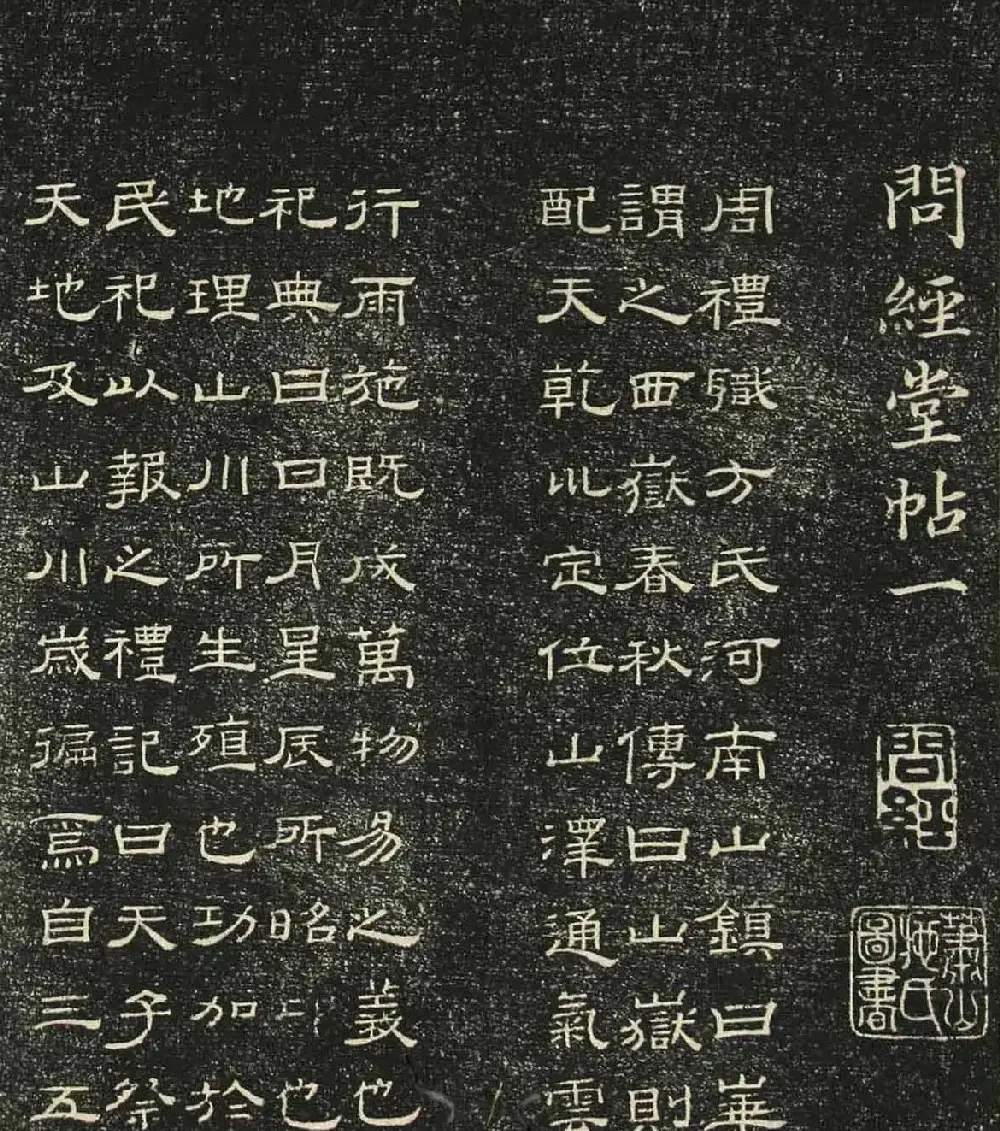 問經堂帖一
問經
蕭山施氏圖書
周禮職方氏河南山鎮曰崋
謂之西嶽春秋傳曰山嶽則
配天乾巛定位山澤通氣雲
行雨施既成萬物易之義也
祀典曰日月星辰所昭卬也
地理山川所生殖也功加於
民祀以報之禮記曰天子祭
天地及山川歲徧焉自三五